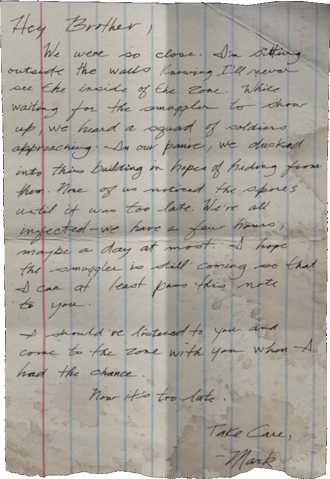 Hey Brother,
We were so close. I'm sitting
outside the walls knowing I'll never
see the inside of the zone. While
waiting for the smuggler to show
up, we heard a squad of soldiers
approaching. In our panic, we ducked
into this building in hopes of hiding from
them. None of us noticed the spores
until it was too late. We're all
infected - we have a few hours,
maybe a day at most. I hope
the smuggler is still coming so that
I can at least pass this note
to you.
I should've listened to you and
come to the zone with you when I
had the chance.
Now it's too late.
Take Care,
- Mark